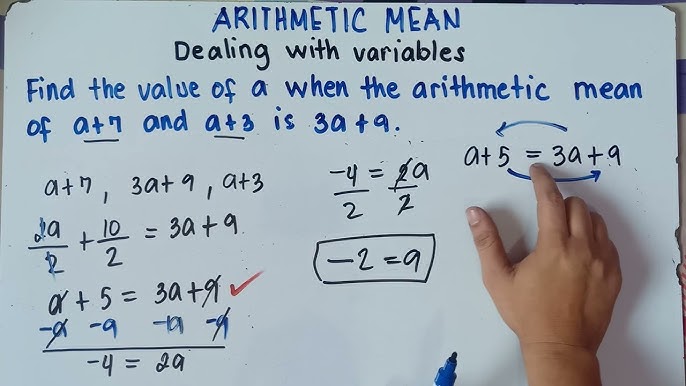 ARITHMETIC MEAN
Dealing with variables
Find the value of a when the arithmetic mean
of a+7 and a+3 is 3a+9.
a+7 , 3a+9 , a+3
2a/2 + 10/2 = 3a+9
a + 5 = 3a+9 ✓
-a -9 -a -9
-4 = 2a
-4/2 = 2a/2
-2 = a
a+5 = 3a+9